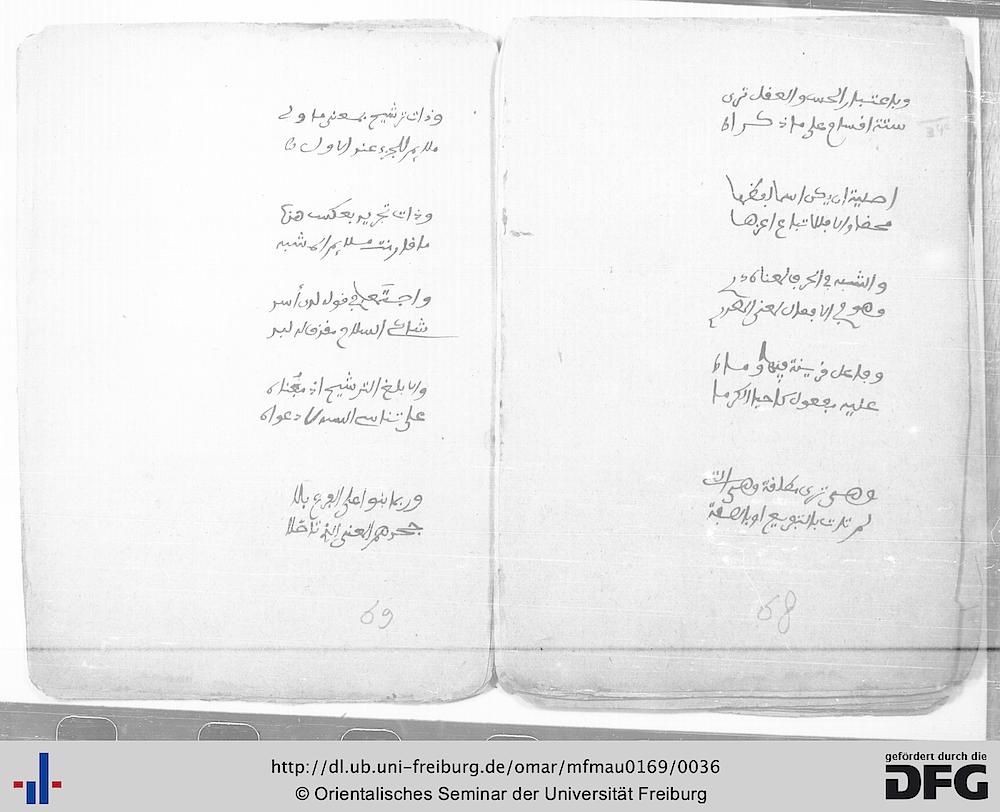 وباعتبار الحس والعقل ترى
ستة اقسام على ما ذكرا
اصلية ان يكن اسما
محضا والا فلها تباع اعزها
والشبه في الحرف لمعناه در
وهو في الافعال لمعنى المصدر
وفاعل قرينة فيها وما
عليه مفعول كاحيا الكرما
وهي ترى مطلقة وهي التي
لم تات بالتفريع او بالصفة
68
وذات ترشيح بمعنى ما ولي
ملايم للجزء عند الاول
وذات تجريد بعكس هذا
ما قارنت ملايم المشبه
واجتمعا في قوله لدى أسد
شاكي السلاح مقذف له لبد
والابلغ الترشيح اذ مبناه
على تناسي دعواه
وربما بنوا على الفرع بلا
جحدهم المعنى الذ تأصلا
69
http://dl.ub.uni-freiburg.de/omar/mfmau0169/0036
© Orientalisches Seminar der Universität Freiburg
gefördert durch die
DFG